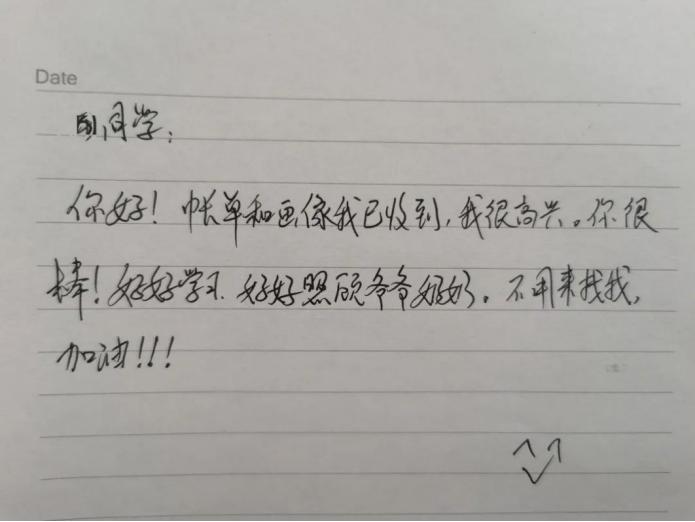 Date
同学：
你好！帐单和画像我已收到，我很高兴。你很
棒！好好学习、好好照顾爷爷奶奶。不用来找我，
加油！！！